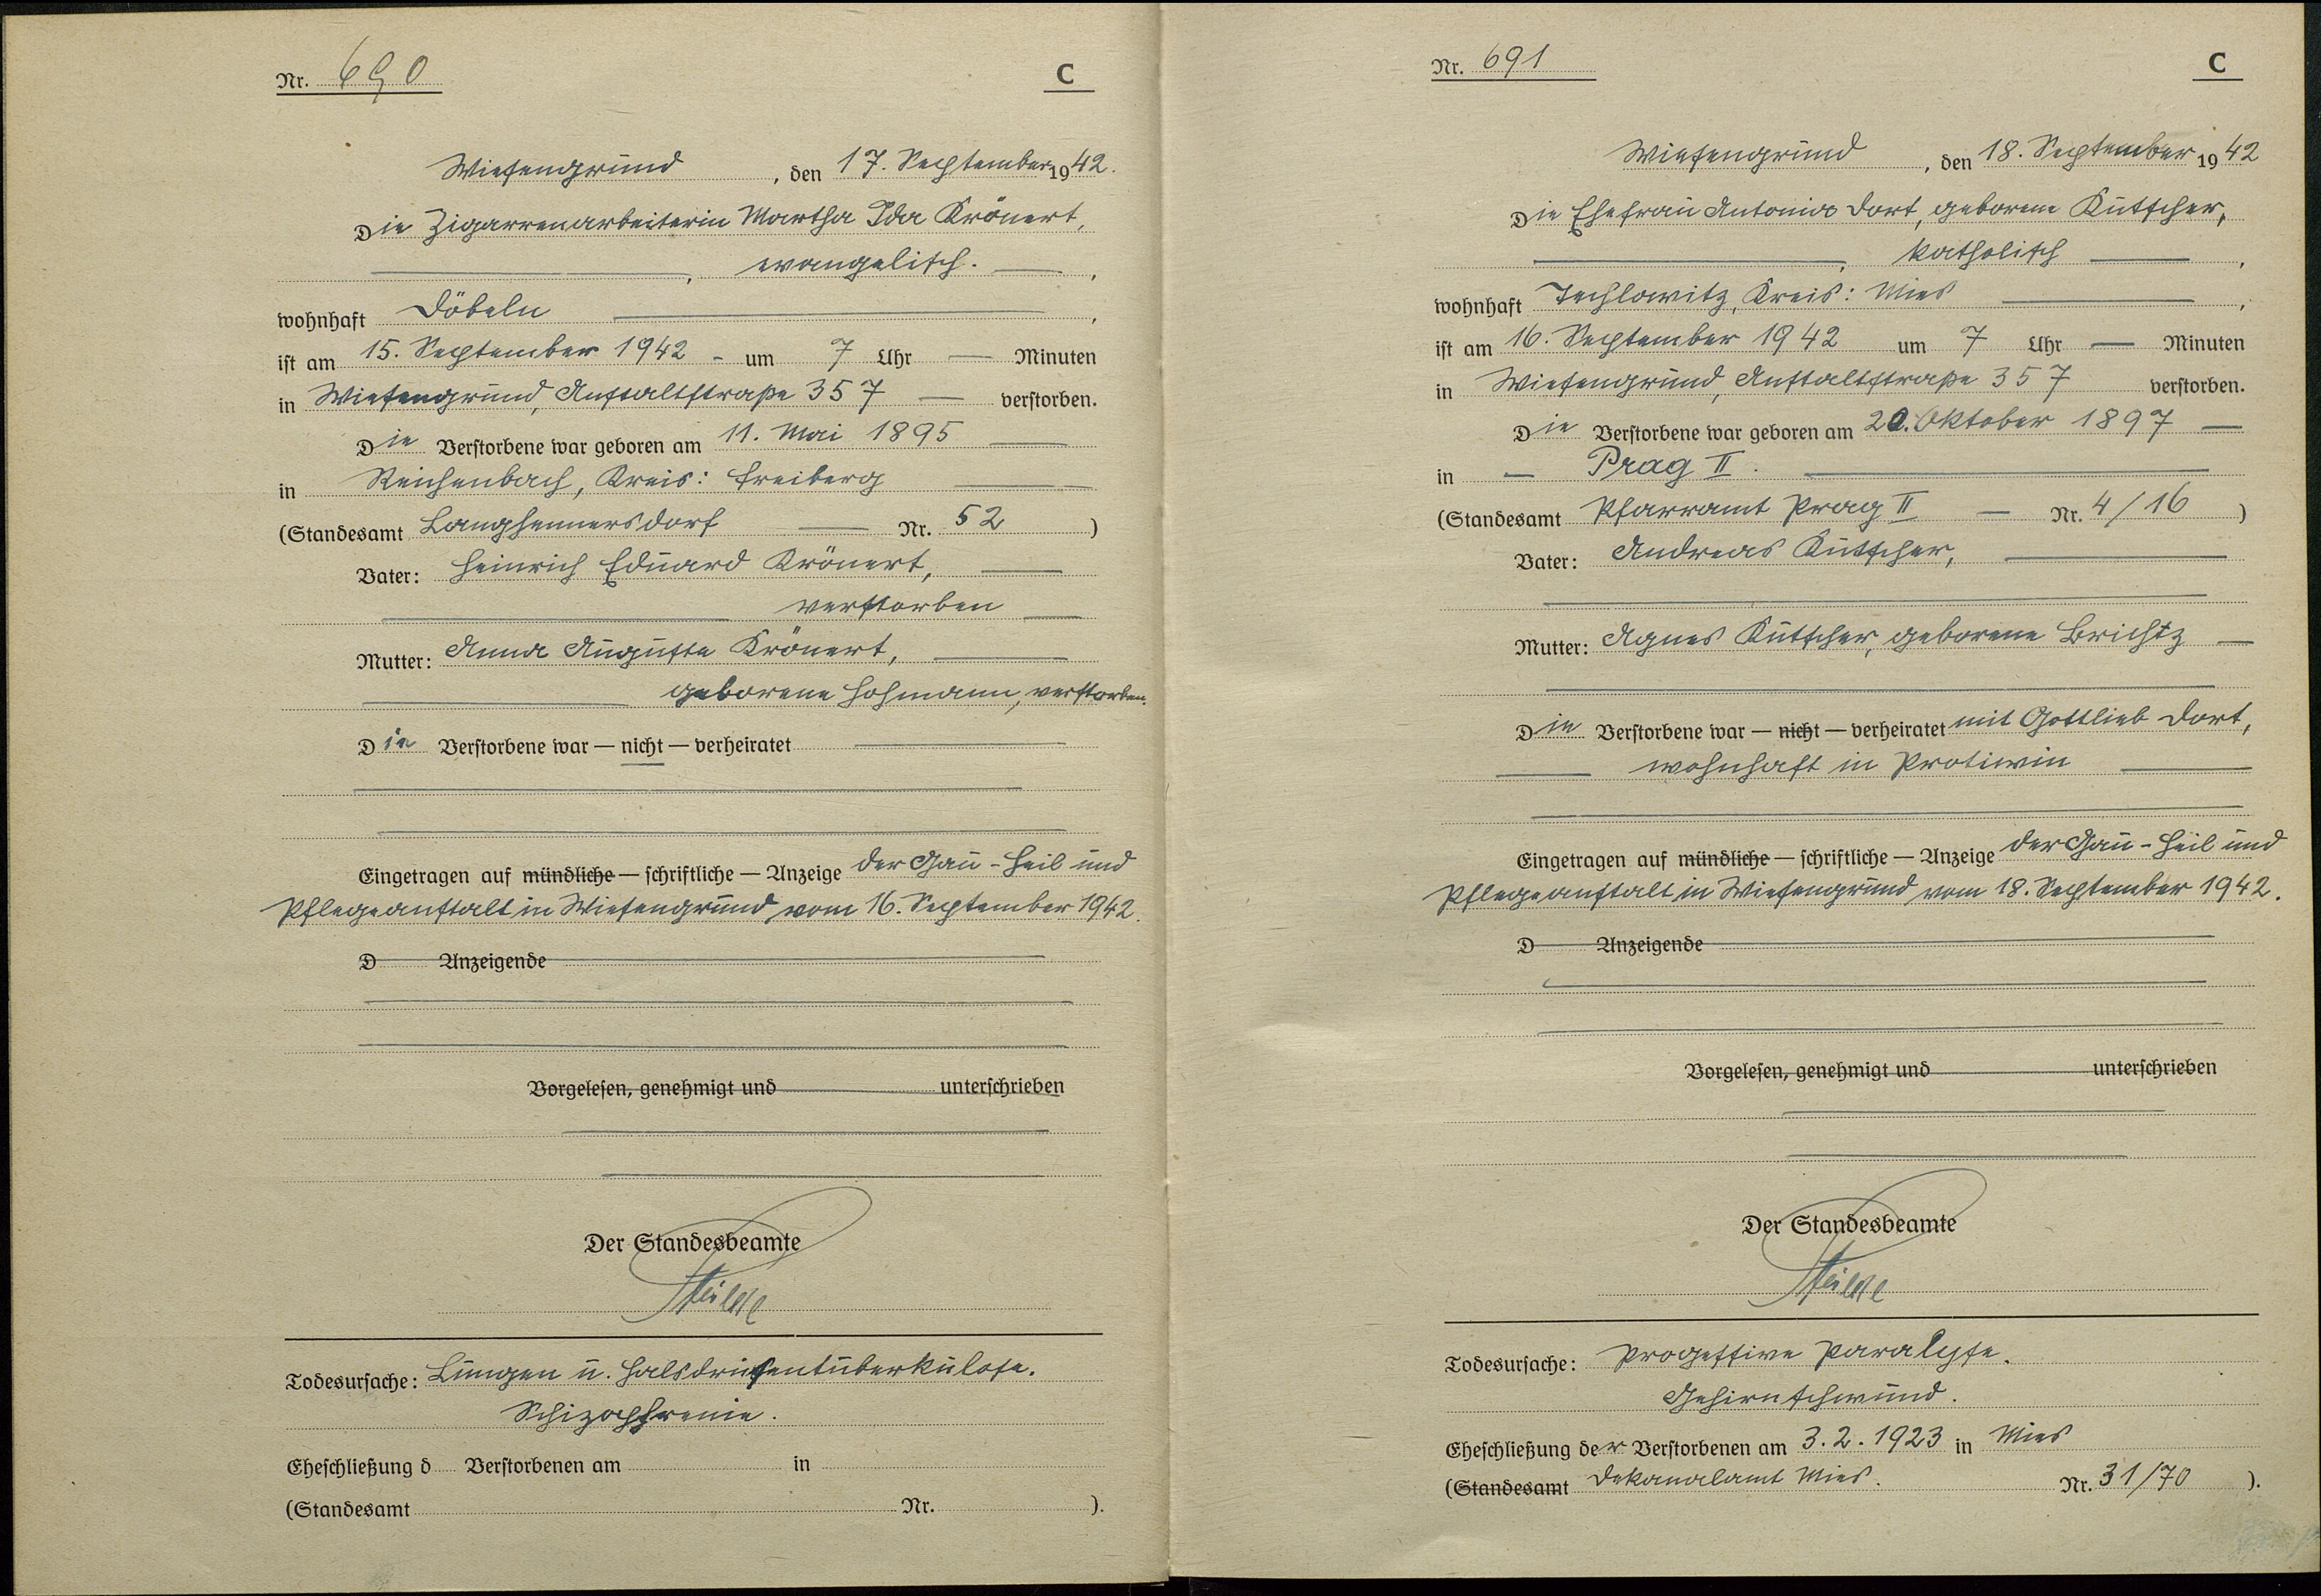 Nr. 690
C
Wiesengrund, den 17. September 1942.
Die Zigarrenarbeiterin Martha Ida Krönert,
, evangelisch. ,
wohnhaft Döbeln ,
ist am 15. September 1942 - um 7 Uhr — Minuten
in Wiesengrund, Anstaltstraße 357 — verstorben.
Die Verstorbene war geboren am 11. Mai 1895
in Reichenbach, Kreis: Freiberg
(Standesamt Langhennersdorf — Nr. 52 )
Vater: Heinrich Eduard Krönert,
verstorben
Mutter: Anna Auguste Krönert,
geborene Hohmann, verstorben.
Die Verstorbene war — nicht — verheiratet
Eingetragen auf mündliche — schriftliche — Anzeige der Gau-Heil und
Pflegeanstalt in Wiesengrund vom 16. September 1942.
D Anzeigende
Vorgelesen, genehmigt und unterschrieben
Der Standesbeamte
Todesursache: Lungen u. Halsdrüsentuberkulose.
Schizophrenie.
Eheschließung d Verstorbenen am in
(Standesamt Nr. ).
Nr. 691
C
Wiesengrund, den 18. September 1942
Die Ehefrau Antonia Dort, geborene Kutscher,
, katholisch ,
wohnhaft Techlowitz, Kreis: Mies ,
ist am 16. September 1942 um 7 Uhr — Minuten
in Wiesengrund, Anstaltstraße 357 verstorben.
Die Verstorbene war geboren am 20. Oktober 1897 —
in — Prag II.
(Standesamt Pfarramt Prag II — Nr. 4/16 )
Vater: Andreas Kutscher,
Mutter: Agnes Kutscher, geborene Brichtz —
Die Verstorbene war — nicht — verheiratet mit Gottlieb Dort,
wohnhaft in Protiwin
Eingetragen auf mündliche — schriftliche — Anzeige der Gau-Heil und
Pflegeanstalt in Wiesengrund vom 18. September 1942.
D Anzeigende
Vorgelesen, genehmigt und unterschrieben
Der Standesbeamte
Todesursache: Progessive Paralyse.
Gehirnschwund.
Eheschließung der Verstorbenen am 3.2.1923 in Mies
(Standesamt Dekanalamt Mies. Nr. 31/70 ).